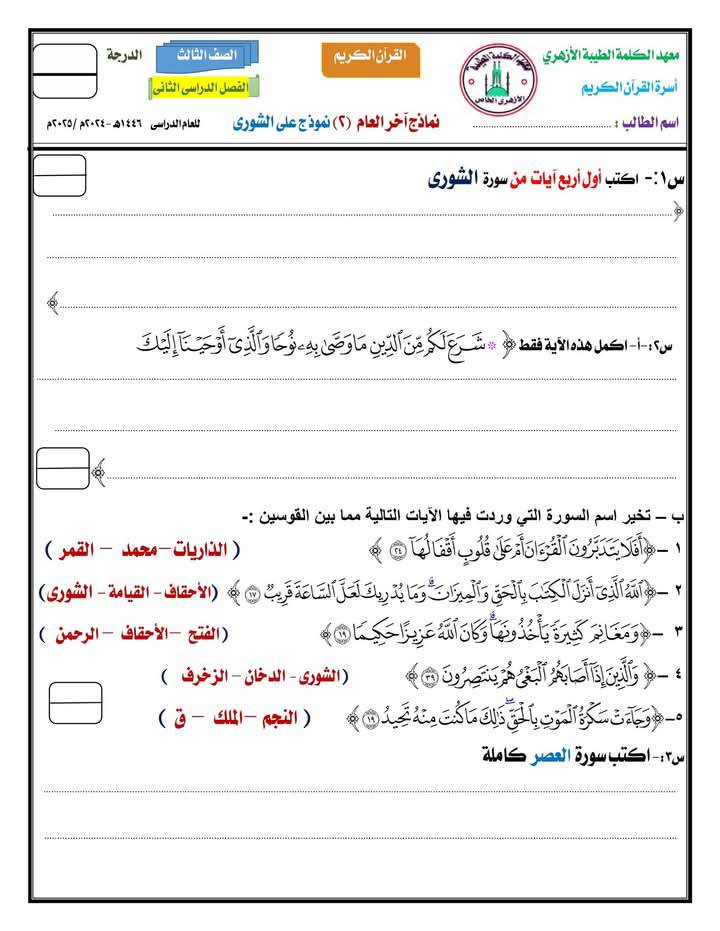 معهد الكلمة الطيبة الأزهري
القرآن الكريم
الصف الثالث
الدرجة
أسرة القرآن الكريم
الفصل الدراسى الثانى
اسم الطالب : ........................................
نماذج آخر العام (٢) نموذج على الشورى
للعام الدراسى ١٤٤٦هـ -٢٠٢٤م /٢٠٢٥م
س١:- اكتب أول أربع آيات من سورة الشورى
﴿........................................
........................................
........................................﴾
س٢:-أ- اكمل هذه الآية فقط ﴿ * شَرَعَ لَكُم مِّنَ ٱلدِّينِ مَا وَصَّىٰ بِهِۦ نُوحًا وَٱلَّذِىٓ أَوْحَيْنَآ إِلَيْكَ
........................................
........................................
........................................﴾
ب – تخير اسم السورة التي وردت فيها الآيات التالية مما بين القوسين :-
١ -﴿أَفَلَا يَتَدَبَّرُونَ ٱلْقُرْءَانَ أَمْ عَلَىٰ قُلُوبٍ أَقْفَالُهَآ ٢٤ ﴾ ( الذاريات –محمد – القمر )
٢ -﴿ٱللَّهُ ٱلَّذِىٓ أَنزَلَ ٱلْكِتَٰبَ بِٱلْحَقِّ وَٱلْمِيزَانَ ۗ وَمَا يُدْرِيكَ لَعَلَّ ٱلسَّاعَةَ قَرِيبٌ ١٧ ﴾ (الأحقاف - القيامة - الشورى)
٣ -﴿وَمَغَانِمَ كَثِيرَةً يَأْخُذُونَهَا ۗ وَكَانَ ٱللَّهُ عَزِيزًا حَكِيمًا ١٩﴾ (الفتح –الأحقاف – الرحمن )
٤ -﴿ وَٱلَّذِينَ إِذَآ أَصَابَهُمُ ٱلْبَغْىُ هُمْ يَنتَصِرُونَ ٣٩ ﴾ (الشورى - الدخان – الزخرف )
٥-﴿وَجَآءَتْ سَكْرَةُ ٱلْمَوْتِ بِٱلْحَقِّ ۖ ذَٰلِكَ مَا كُنتَ مِنْهُ تَحِيدُ ١٩ ﴾ ( النجم –الملك – ق )
س٣:- اكتب سورة العصر كاملة
........................................
........................................